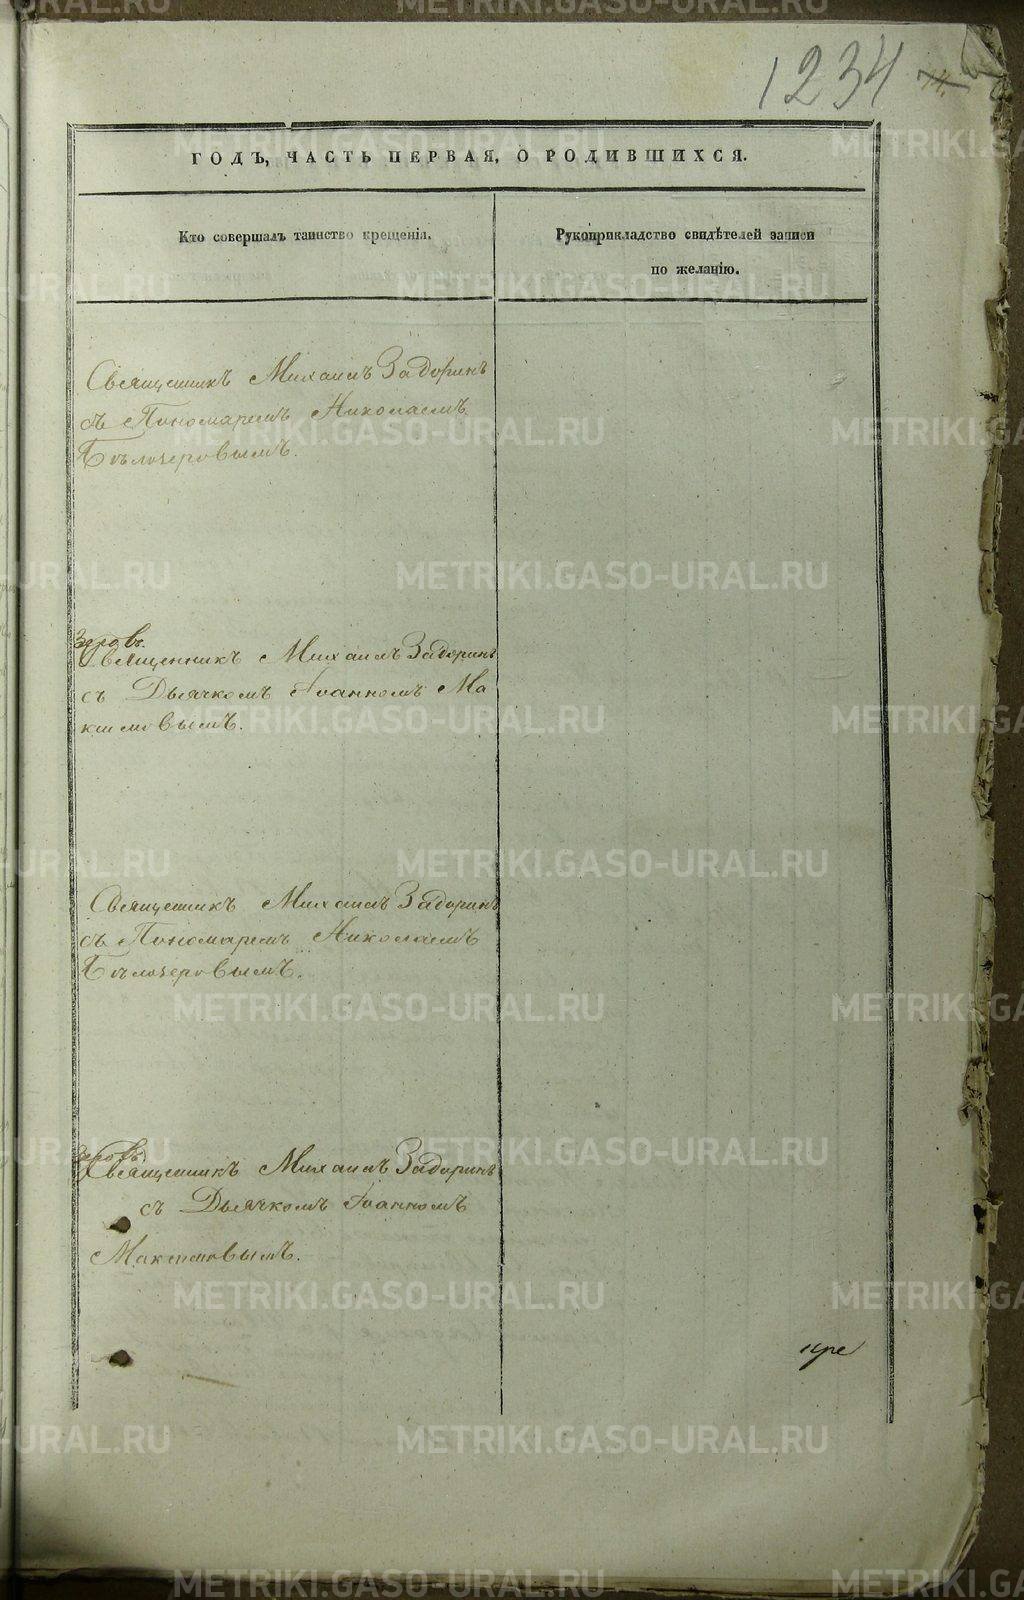 1234
ГОДЪ, ЧАСТЬ ПЕРВАЯ, О РОДИВШИХСЯ.
Кто совершалъ таинство крещенія.
Рукоприкладство свидѣтелей записи
по желанію.
Священникъ Михаилъ Задоринъ
съ Пономаремъ Николаемъ
Бѣлозеровымъ.
Священникъ Михаилъ Задоринъ
съ Дьячкомъ Іоанномъ Ма
ксимовымъ.
Священникъ Михаилъ Задоринъ
съ Пономаремъ Николаемъ
Бѣлозеровымъ.
Священникъ Михаилъ Задоринъ
съ Дьячкомъ Іоанномъ
Максимовымъ.
METRIKI.GASO-URAL.RU